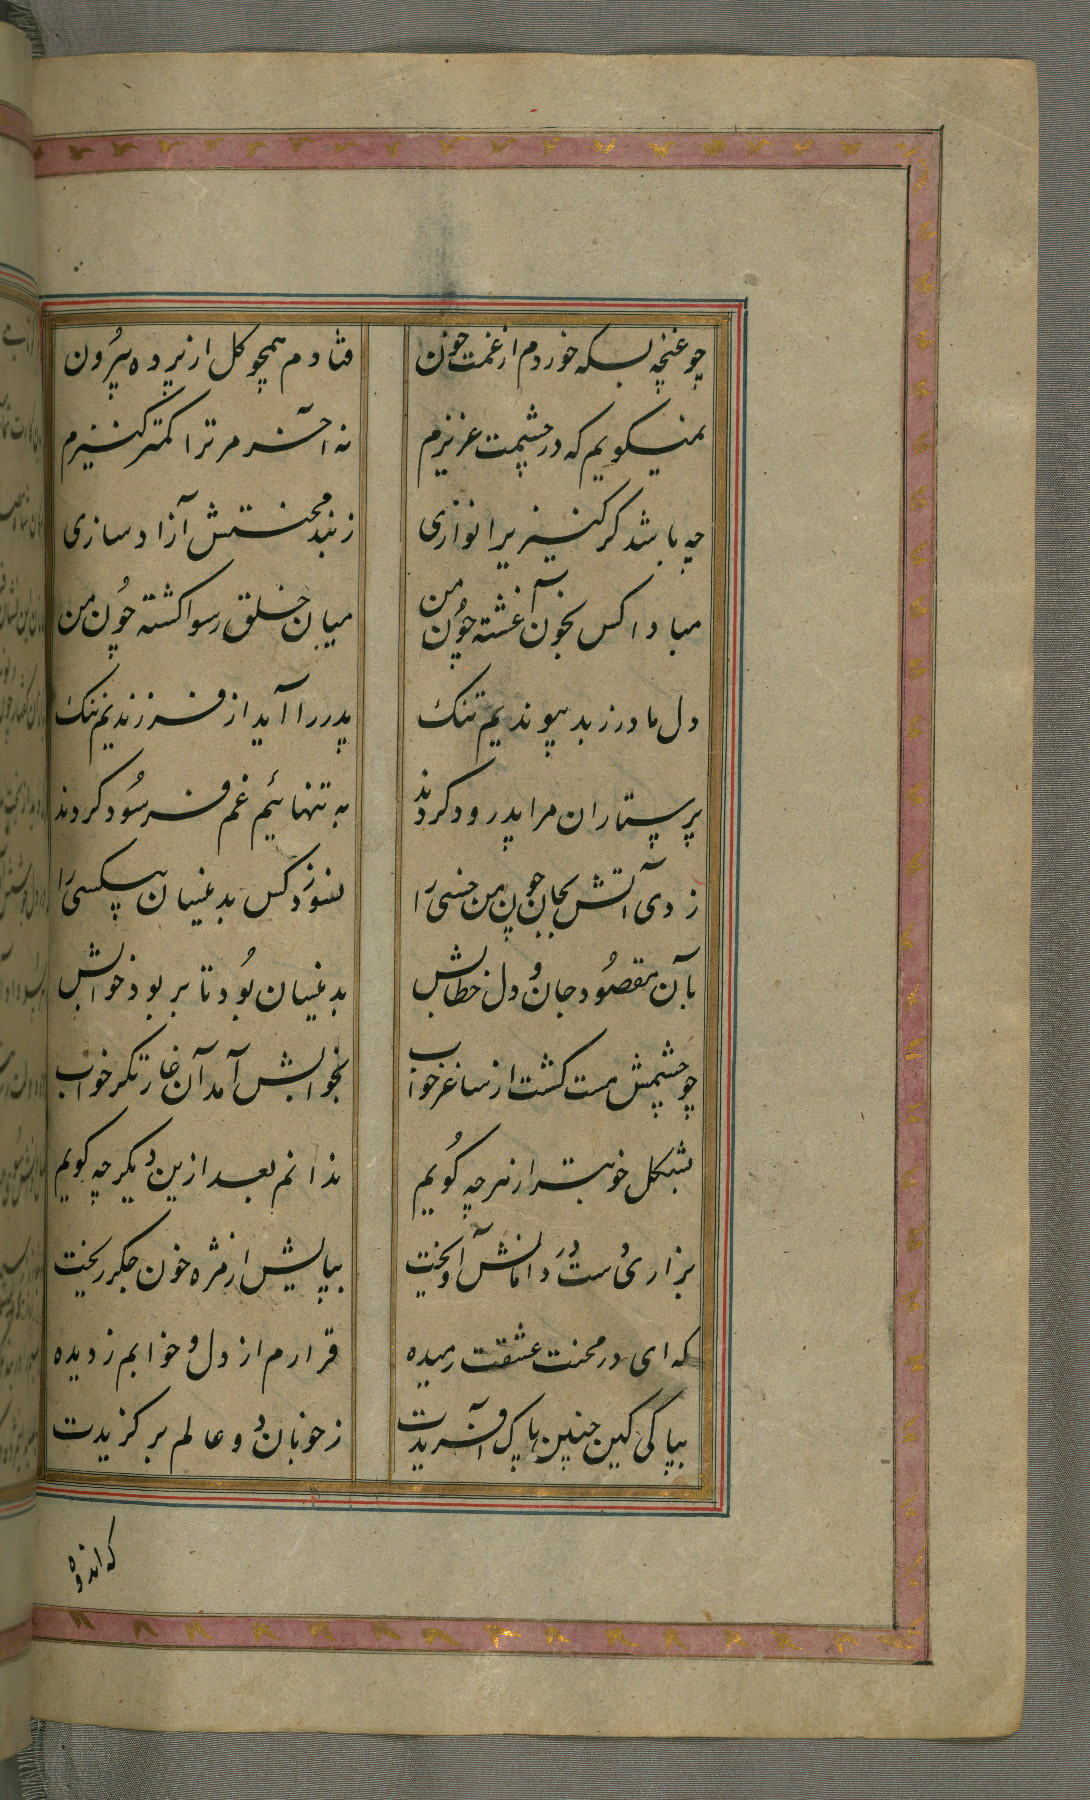 چو غنچه بسکه خوردم از غمت خون فتادم همچو کل از پرده بیرون
نمیکویم که در چشمت عزیزم نه آخر مر ترا کمتر کنیزم
چه باشد کر کنیزیرا نوازی ز بند محنتش آزاد سازی
مبادا کس بخون آغشته چون من میان خلق رسوا کشته چون من
دل مادر ز بد پیوندیم تنک پدر را آید از فرزندیم ننک
پرستاران مرا پدرود کردند به تنهائیم غم فرسود کردند
زدی آتش بجان چون من خسی را نسوزد کس بدغنیان بیکسی را
بآن مقصود جان و دل خطابش بدغنیان بود تا بربود خوابش
چو چشمش مست کشت از ساغر خواب بخوابش آمد آن غارتکر خواب
بشکل خوبتر از هر چه کویم ندانم بعد ازین دیکر چه کویم
بزاری دست در دامانش آویخت بپایش از مژه خون جکر ریخت
که ای در محنت عشقت رمیده قرارم از دل و خوابم ز دیده
بپاکی کین چنین پاک آفریدت ز خوبان دو عالم برکزیدت
که اندوه